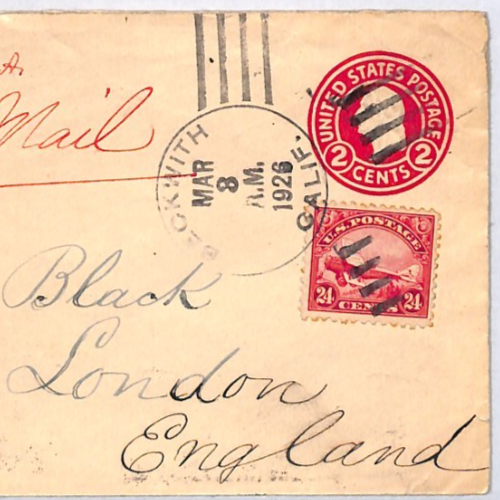 A.
Mail
UNITED STATES POSTAGE
2 CENTS 2
BECKWITH CALIF.
MAR
8
A.M.
1926
U.S. POSTAGE
24 CENTS 24
Black
London
England